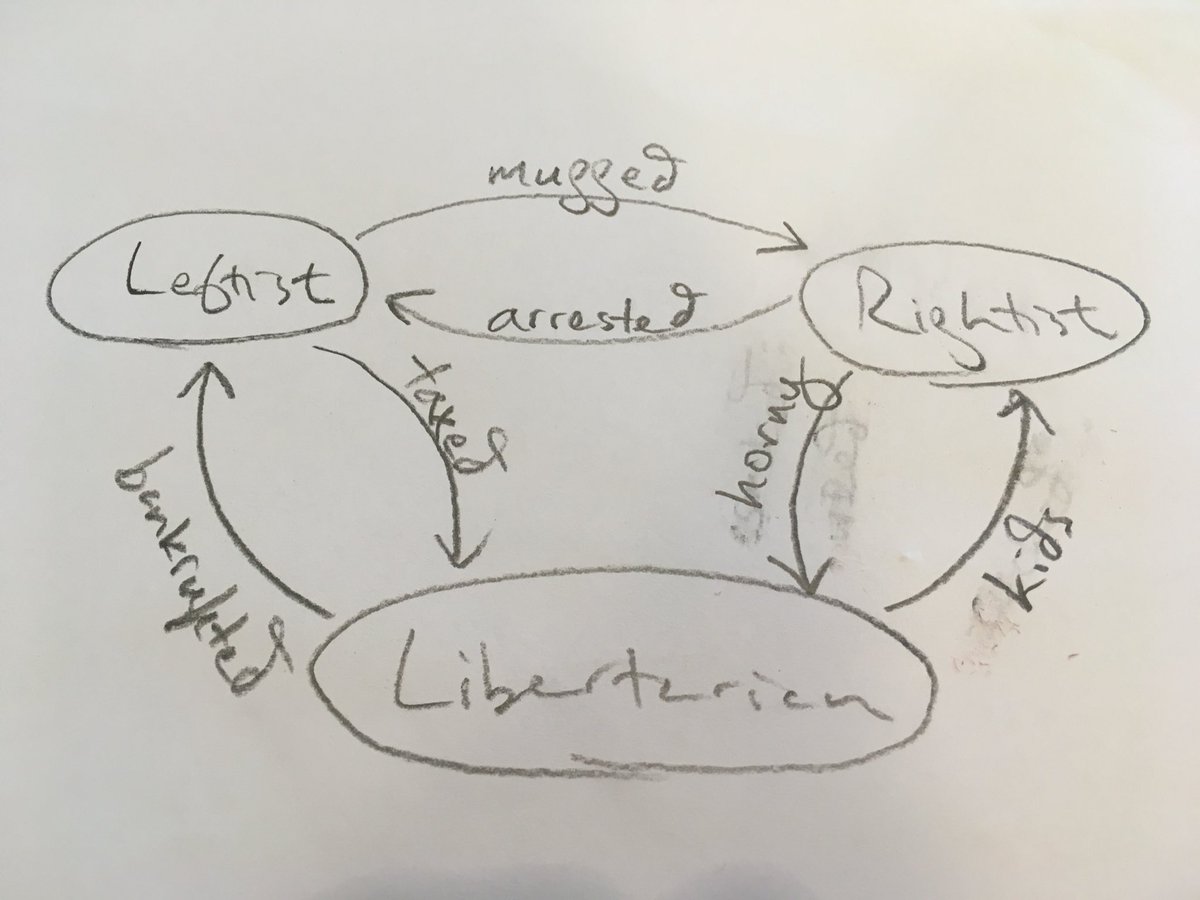 mugged
Leftist
arrested
Rightist
taxed
horny
bankrupted
kids
Libertarian